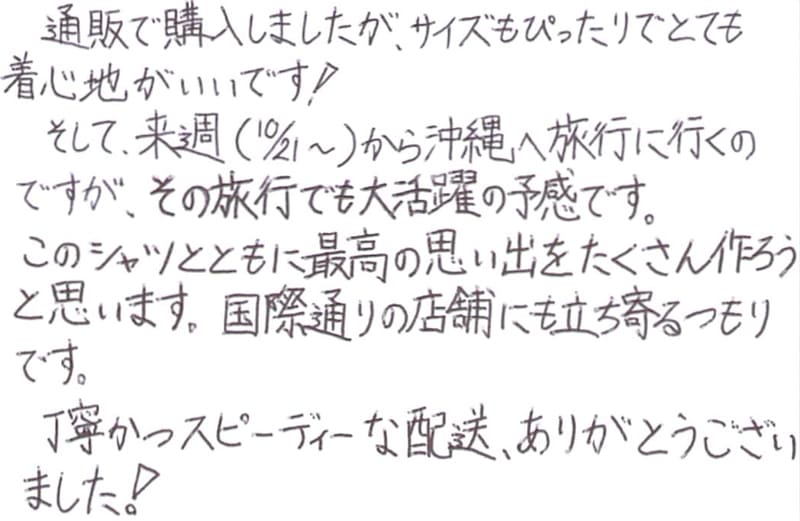 通販で購入しましたが、サイズもぴったりでとても
着心地がいいです!
そして、来週(10/21~)から沖縄へ旅行に行くの
ですが、その旅行でも大活躍の予感です。
このシャツとともに最高の思い出をたくさん作ろう
と思います。国際通りの店舗にも立ち寄るつもり
です。
丁寧かつスピーディーな配送、ありがとうござい
ました!